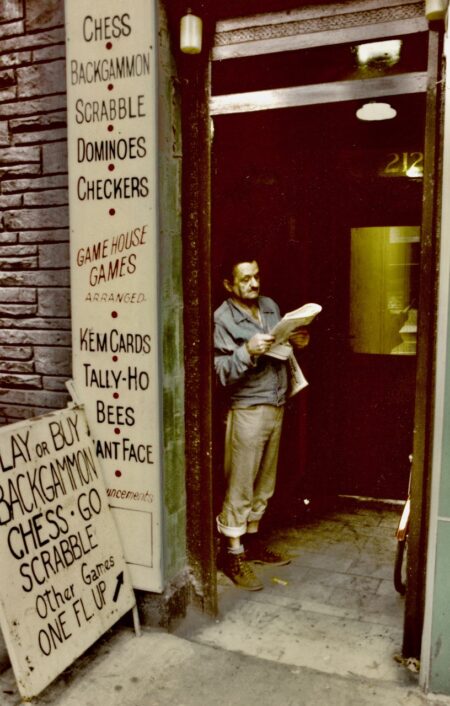 CHESS
BACKGAMMON
SCRABBLE
DOMINOES
CHECKERS
GAME HOUSE
GAMES
ARRANGED
KEM CARDS
TALLY-HO
BEES
ANT FACE
uncements
212
LAY OR BUY
BACKGAMMON
CHESS · GO
SCRABBLE
Other Games
ONE FL. UP